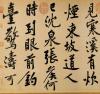 見寒溪有炊
煙東坡道人已
沈泉張侯何
時到眼前釣
臺驚濤可